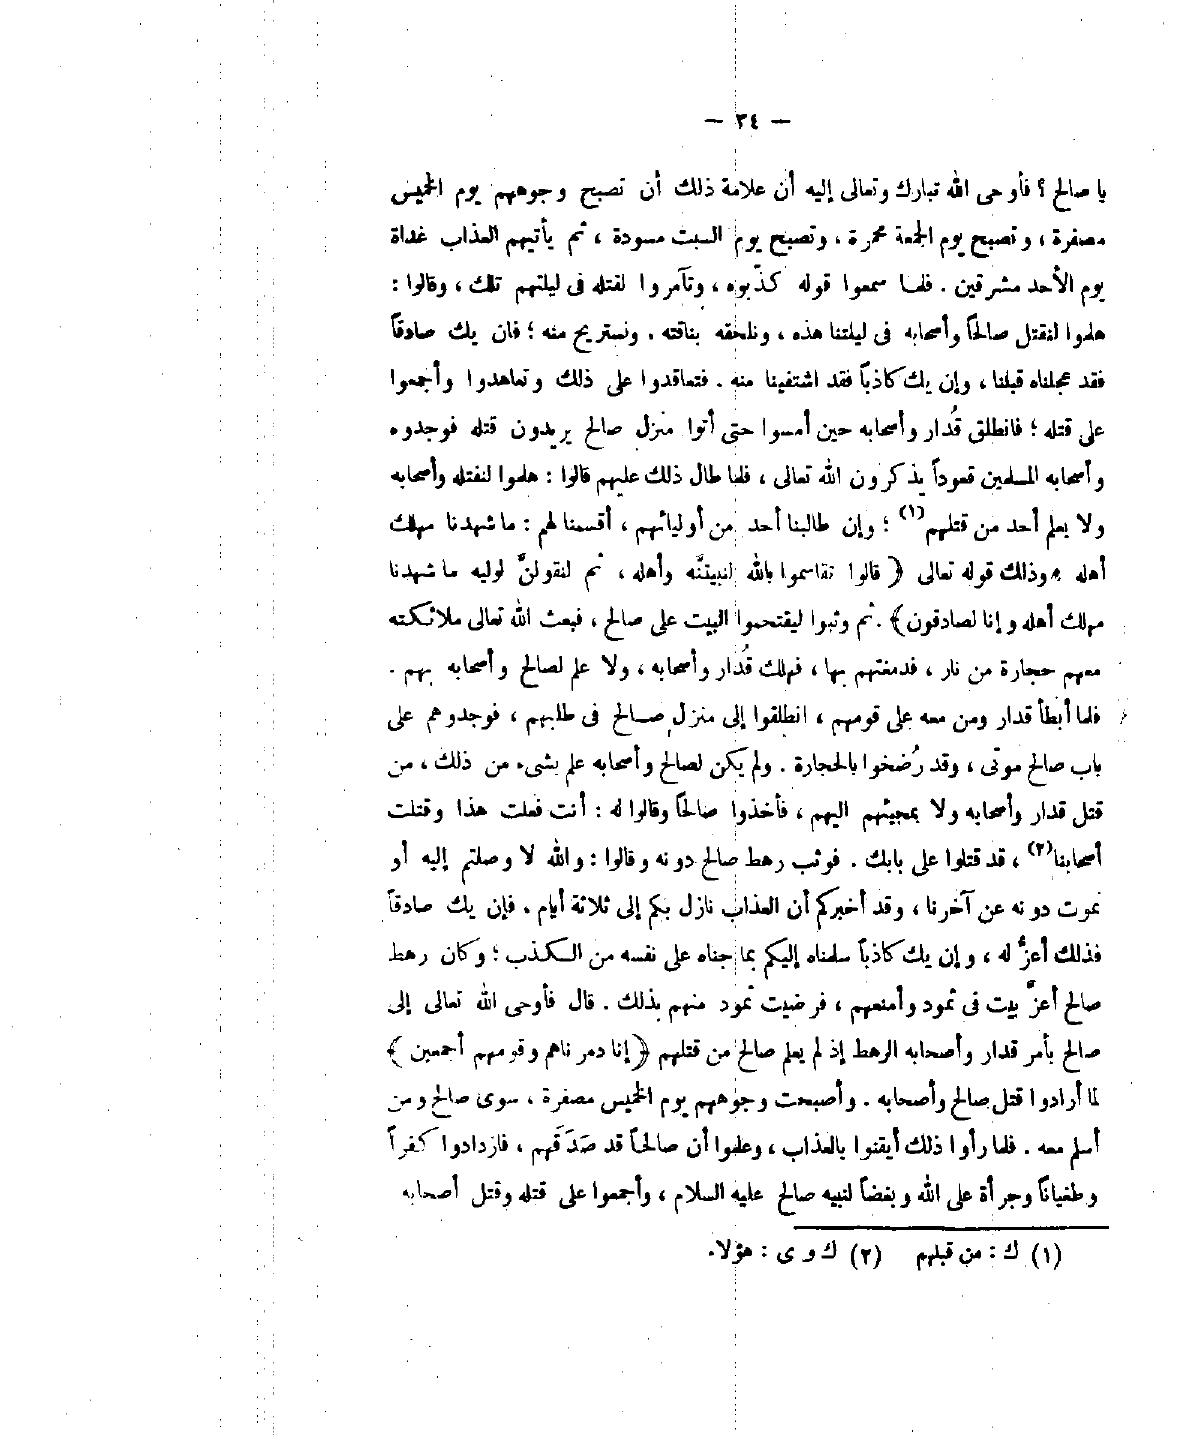 — ٣٤ —
يا صالح ؟ فأوحى الله تبارك وتعالى إليه أن علامة ذلك أن تصبح وجوههم يوم الخميس
مصفرة ، وتصبح يوم الجمعة محمرة ، وتصبح يوم السبت مسودة ، ثم يأتيهم العذاب غداة
يوم الأحد مشرقين . فلما سمعوا قوله كذّبوه ، وتآمروا لقتله فى ليلتهم تلك ، وقالوا :
هلموا لنقتل صالحاً وأصحابه فى ليلتنا هذه ، ونلحقه بناقته . ونستريح منه ؛ فان يك صادقاً
فقد عجلناه قبلنا ، وإن يك كاذباً فقد اشتفينا منه . فتعاقدوا على ذلك وتعاهدوا وأجمعوا
على قتله ؛ فانطلق قُدار وأصحابه حين أمسوا حتى أتوا منزل صالح يريدون قتله فوجدوه
وأصحابه المسلمين قعوداً يذكرون الله تعالى ، فلما طال ذلك عليهم قالوا : هلموا لنقتله وأصحابه
ولا يعلم أحد من قتلهم(١) ؛ وإن طالبنا أحد من أوليائهم ، أقسمنا لهم : ما شهدنا مهلك
أهله وذلك قوله تعالى ﴿ قالوا تقاسموا بالله لنبيتنَّه وأهله ، ثم لنقولنَّ لوليه ما شهدنا
مهلك أهله وإنا لصادقون﴾ . ثم وثبوا ليقتحموا البيت على صالح ، فبعث الله تعالى ملائكته
معهم حجارة من نار ، فدمغتهم بها ، فهلك قُدار وأصحابه ، ولا علم لصالح وأصحابه بهم .
فلما أبطأ قدار ومن معه على قومهم ، انطلقوا إلى منزل صالح فى طلبهم ، فوجدوهم على
باب صالح موتى ، وقد رُضخوا بالحجارة . ولم يكن لصالح وأصحابه علم بشىء من ذلك ، من
قتل قدار وأصحابه ولا بمجيئهم اليهم ، فأخذوا صالحاً وقالوا له : أنت فعلت هذا وقتلت
أصحابنا(٢) ، قد قتلوا على بابك . فوثب رهط صالح دونه وقالوا : والله لا وصلتم إليه أو
نموت دونه عن آخرنا ، وقد أخبركم أن العذاب نازل بكم إلى ثلاثة أيام . فإن يك صادقاً
فذلك أعزُّ له ، وإن يك كاذباً سلمناه إليكم بما جناه على نفسه من الكذب ؛ وكان رهط
صالح أعزَّ بيت فى ثمود وأمنعهم ، فرضيت ثمود منهم بذلك . قال فأوحى الله تعالى إلى
صالح بأمر قدار وأصحابه الرهط إذ لم يعلم صالح من قتلهم ﴿ إنا دمرناهم وقومهم أجمعين ﴾
لما أرادوا قتل صالح وأصحابه . وأصبحت وجوههم يوم الخميس مصفرة ، سوى صالح ومن
أسلم معه . فلما رأوا ذلك أيقنوا بالعذاب ، وعلموا أن صالحاً قد صَدَقَهم ، فازدادوا كفراً
وطغياناً وجرأة على الله وبغضاً لنبيه صالح عليه السلام ، وأجمعوا على قتله وقتل أصحابه
(١) ك : من قبلهم (٢) ك و ى : هؤلاء.